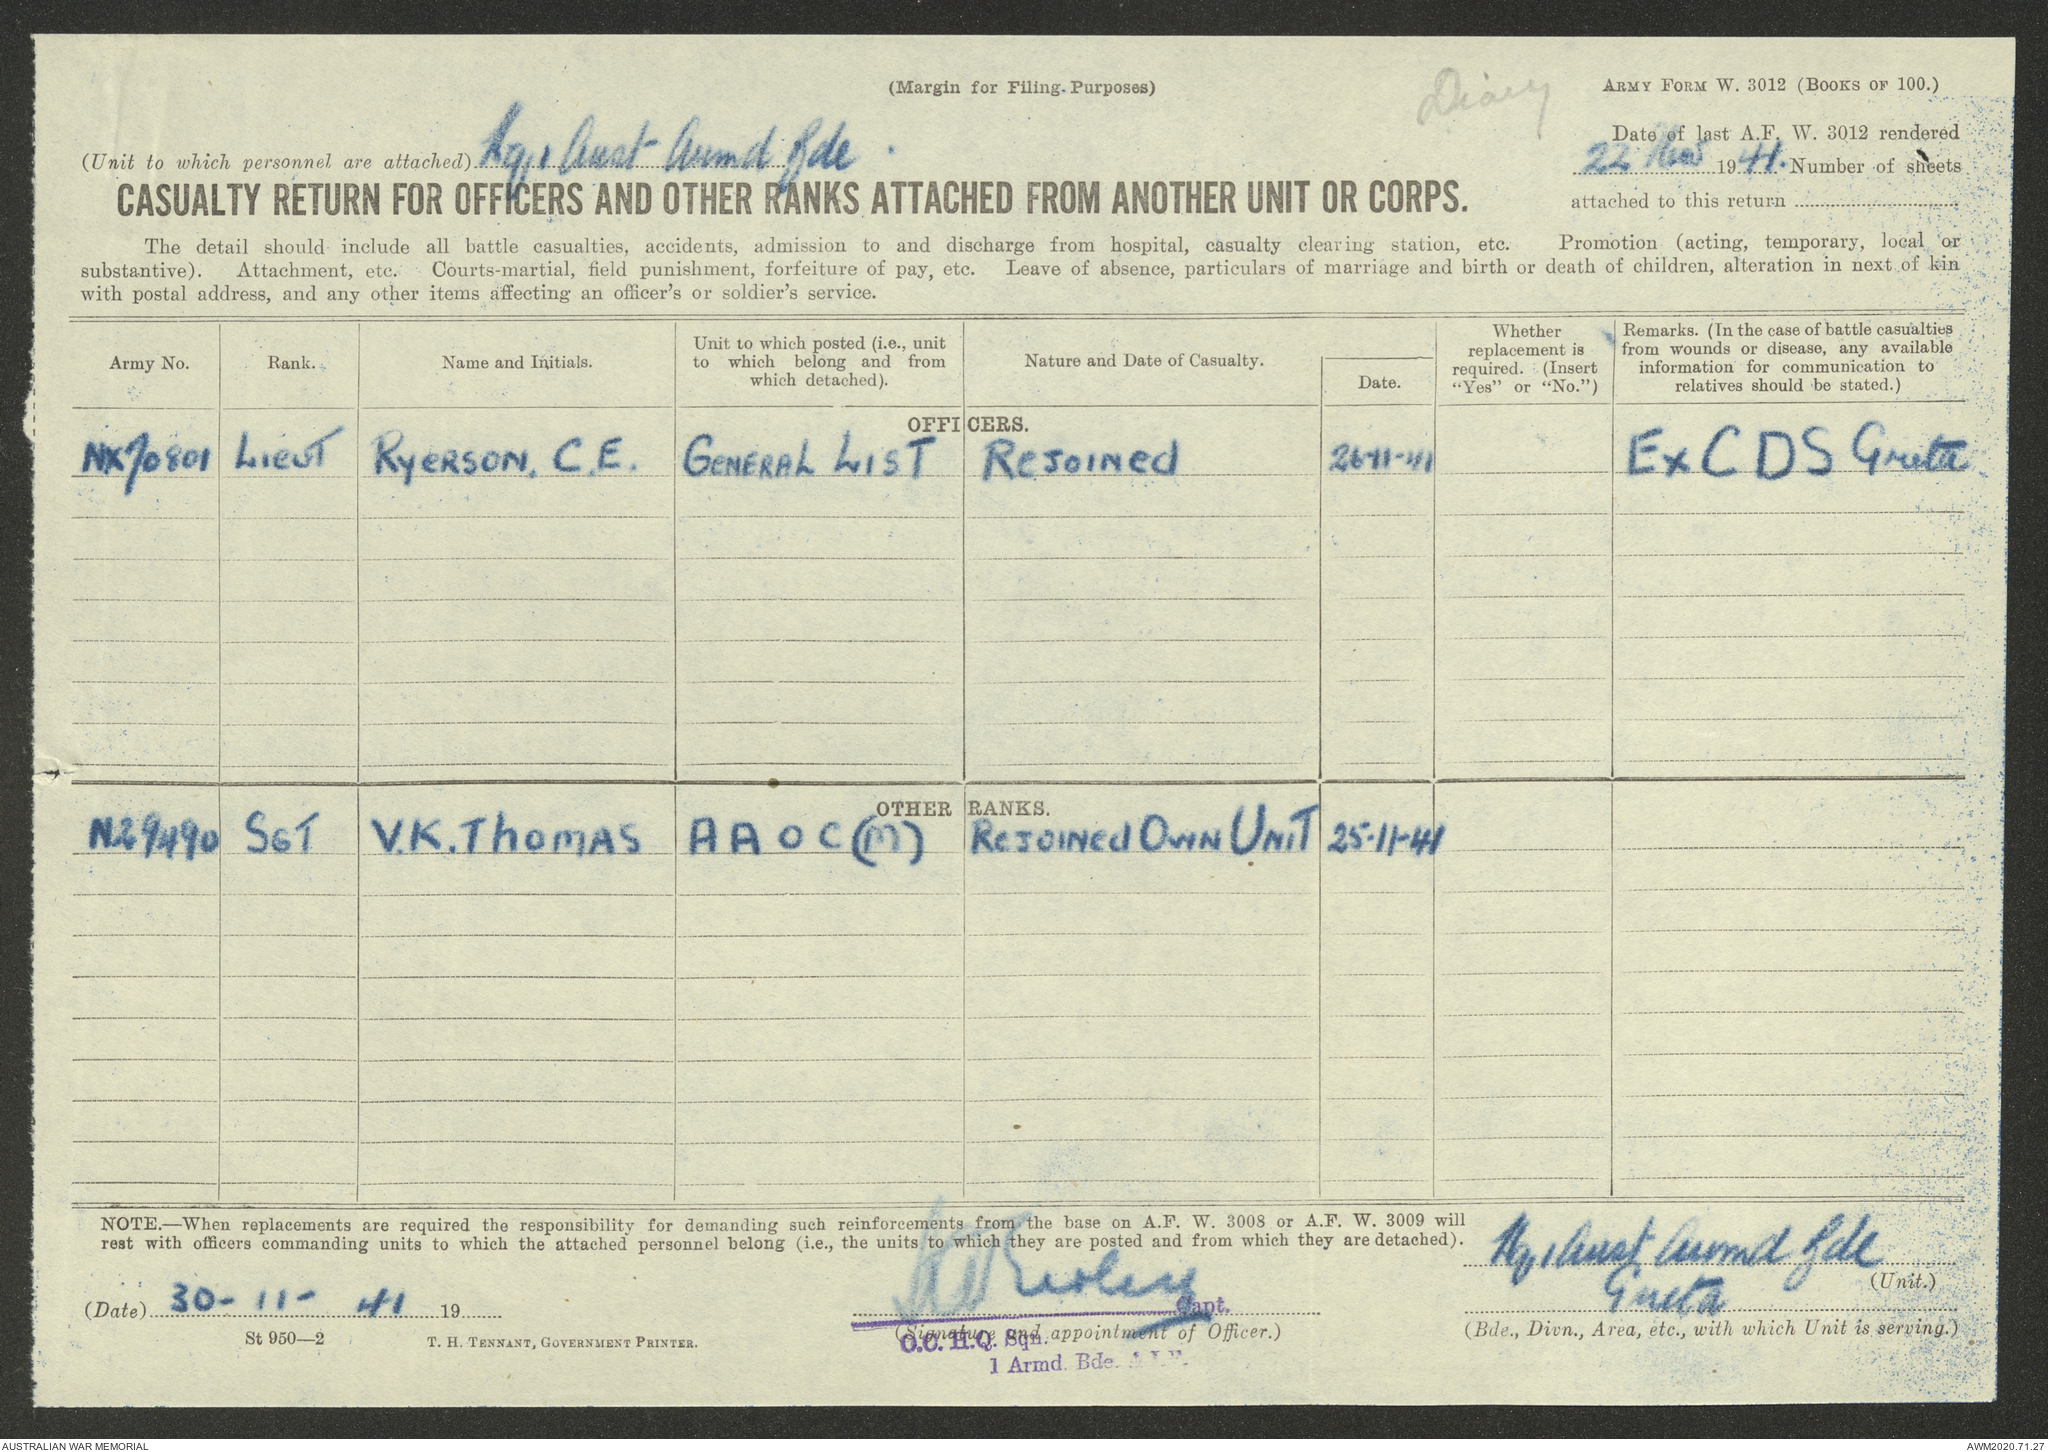 (Margin for Filing Purposes)
Diary
ARMY FORM W. 3012 (BOOKS OF 100.)
(Unit to which personnel are attached) Hq 1 Aust Armd Bde.
Date of last A.F. W. 3012 rendered
22 Nov 1941. Number of sheets
attached to this return
CASUALTY RETURN FOR OFFICERS AND OTHER RANKS ATTACHED FROM ANOTHER UNIT OR CORPS.
The detail should include all battle casualties, accidents, admission to and discharge from hospital, casualty clearing station, etc. Promotion (acting, temporary, local or
substantive). Attachment, etc. Courts-martial, field punishment, forfeiture of pay, etc. Leave of absence, particulars of marriage and birth or death of children, alteration in next of kin
with postal address, and any other items affecting an officer's or soldier's service.
Army No.
Rank.
Name and Initials.
Unit to which posted (i.e., unit
to which belong and from
which detached).
Nature and Date of Casualty.
Date.
Whether
replacement is
required. (Insert
"Yes" or "No.")
Remarks. (In the case of battle casualties
from wounds or disease, any available
information for communication to
relatives should be stated.)
OFFICERS.
NX70801 LIEUT RYERSON. C.E. GENERAL LIST REJOINED 26-11-41 Ex C D S Greta
OTHER RANKS.
N29490 SGT V.K. THOMAS A A O C (M) REJOINED OWN UNIT 25-11-41
NOTE.—When replacements are required the responsibility for demanding such reinforcements from the base on A.F. W. 3008 or A.F. W. 3009 will
rest with officers commanding units to which the attached personnel belong (i.e., the units to which they are posted and from which they are detached).
Hq 1 Aust Armd Bde
(Unit.)
(Date) 30-11-41 19
Capt.
Greta
(Signature and appointment of Officer.)
(Bde., Divn., Area, etc., with which Unit is serving.)
O.C. H.Q. Sqn.
1 Armd. Bde. A.I.F.
St 950—2
T. H. TENNANT, GOVERNMENT PRINTER.
AUSTRALIAN WAR MEMORIAL
AWM2020.71.27